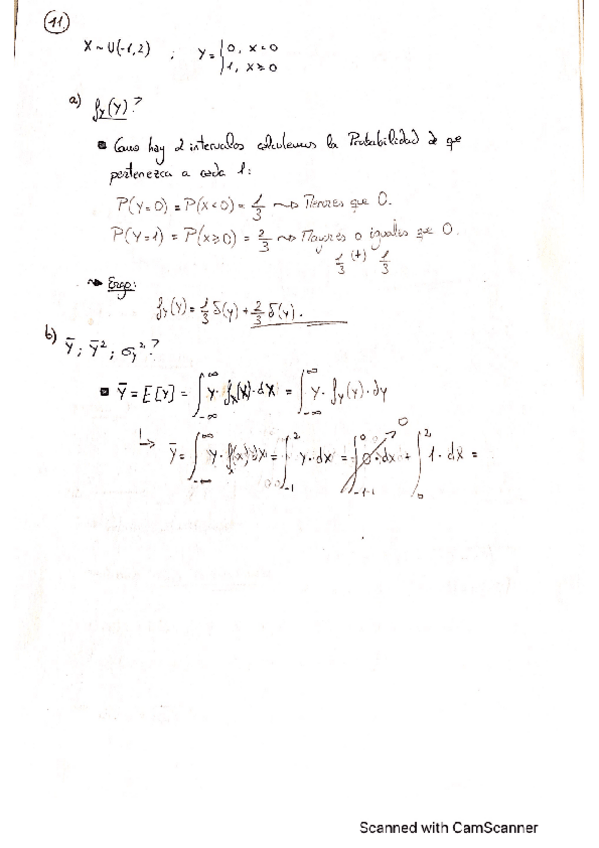 11
X ~ U(-1,2) ; Y = { 0, x<0
1, x≥0
a) f_Y(Y)?
Como hay 2 intervalos calculemus la Probabilidad de que
pertenezca a cada 1:
P(Y=0) = P(x<0) = 1/3 ~> Menores que 0.
P(Y=1) = P(x≥0) = 2/3 ~> Mayores o iguales que 0.
1/3 (+) 1/3
~> Ergo:
f_Y(Y) = 1/3 δ(y) + 2/3 δ(y).
b) Ȳ; Ȳ²; σ_y²?
Ȳ = E[Y] = ∫_{-∞}^{∞} y · f_x(x) · dx = ∫_{-∞}^{∞} y · f_Y(y) · dy
Ȳ = ∫_{-∞}^{∞} y · f_x(x) dx = ∫_{-1}^{2} y · dx = ∫_{-1}^{0} 0 · dx + ∫_{0}^{2} 1 · dx =
Scanned with CamScanner